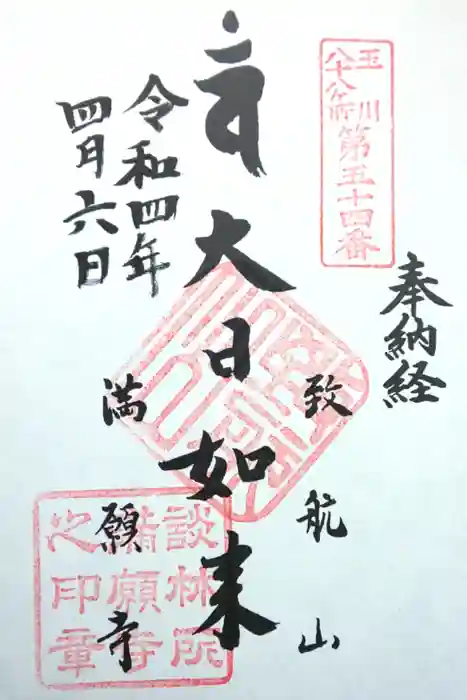 玉川
八十八ヶ所
第五十四番
奉納経
致航山
大日如来
満願寺
令和四年
四月六日
談林所
満願寺
之印章